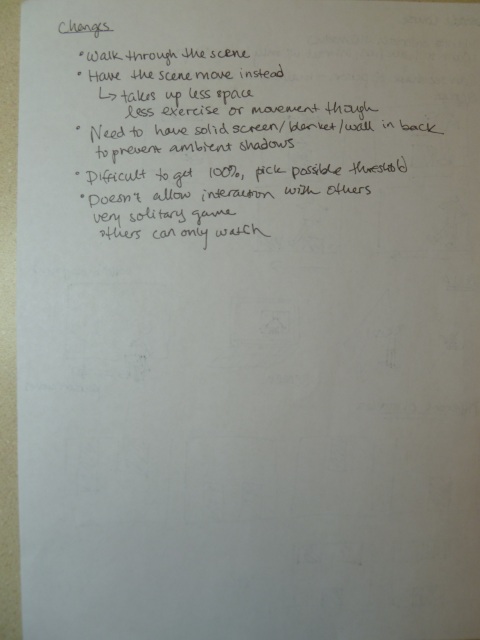 Changes
• Walk through the scene
• Have the scene move instead
↳ takes up less space
less exercise or movement though
• Need to have solid screen/blanket/wall in back
to prevent ambient shadows
• Difficult to get 100%, pick possible threshold
• Doesn't allow interaction with others
very solitary game
others can only watch